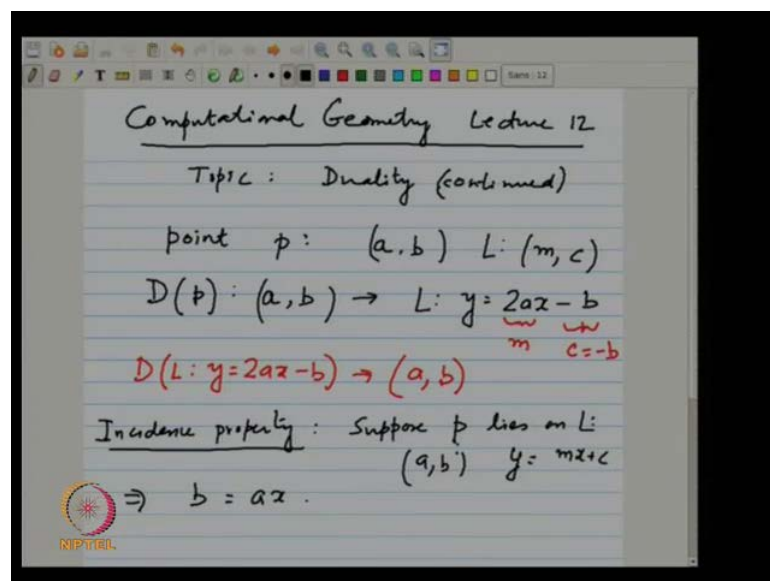 Sans : 12
Computational Geometry Lecture 12
Topic : Duality (continued)
point p : (a, b) L: (m, c)
D(p) : (a, b) → L: y = 2ax - b
m c = -b
D(L : y = 2ax - b) → (a, b)
Incidence property : Suppose p lies on L:
(a, b) y = mx + c
⇒ b = ax .
NPTEL